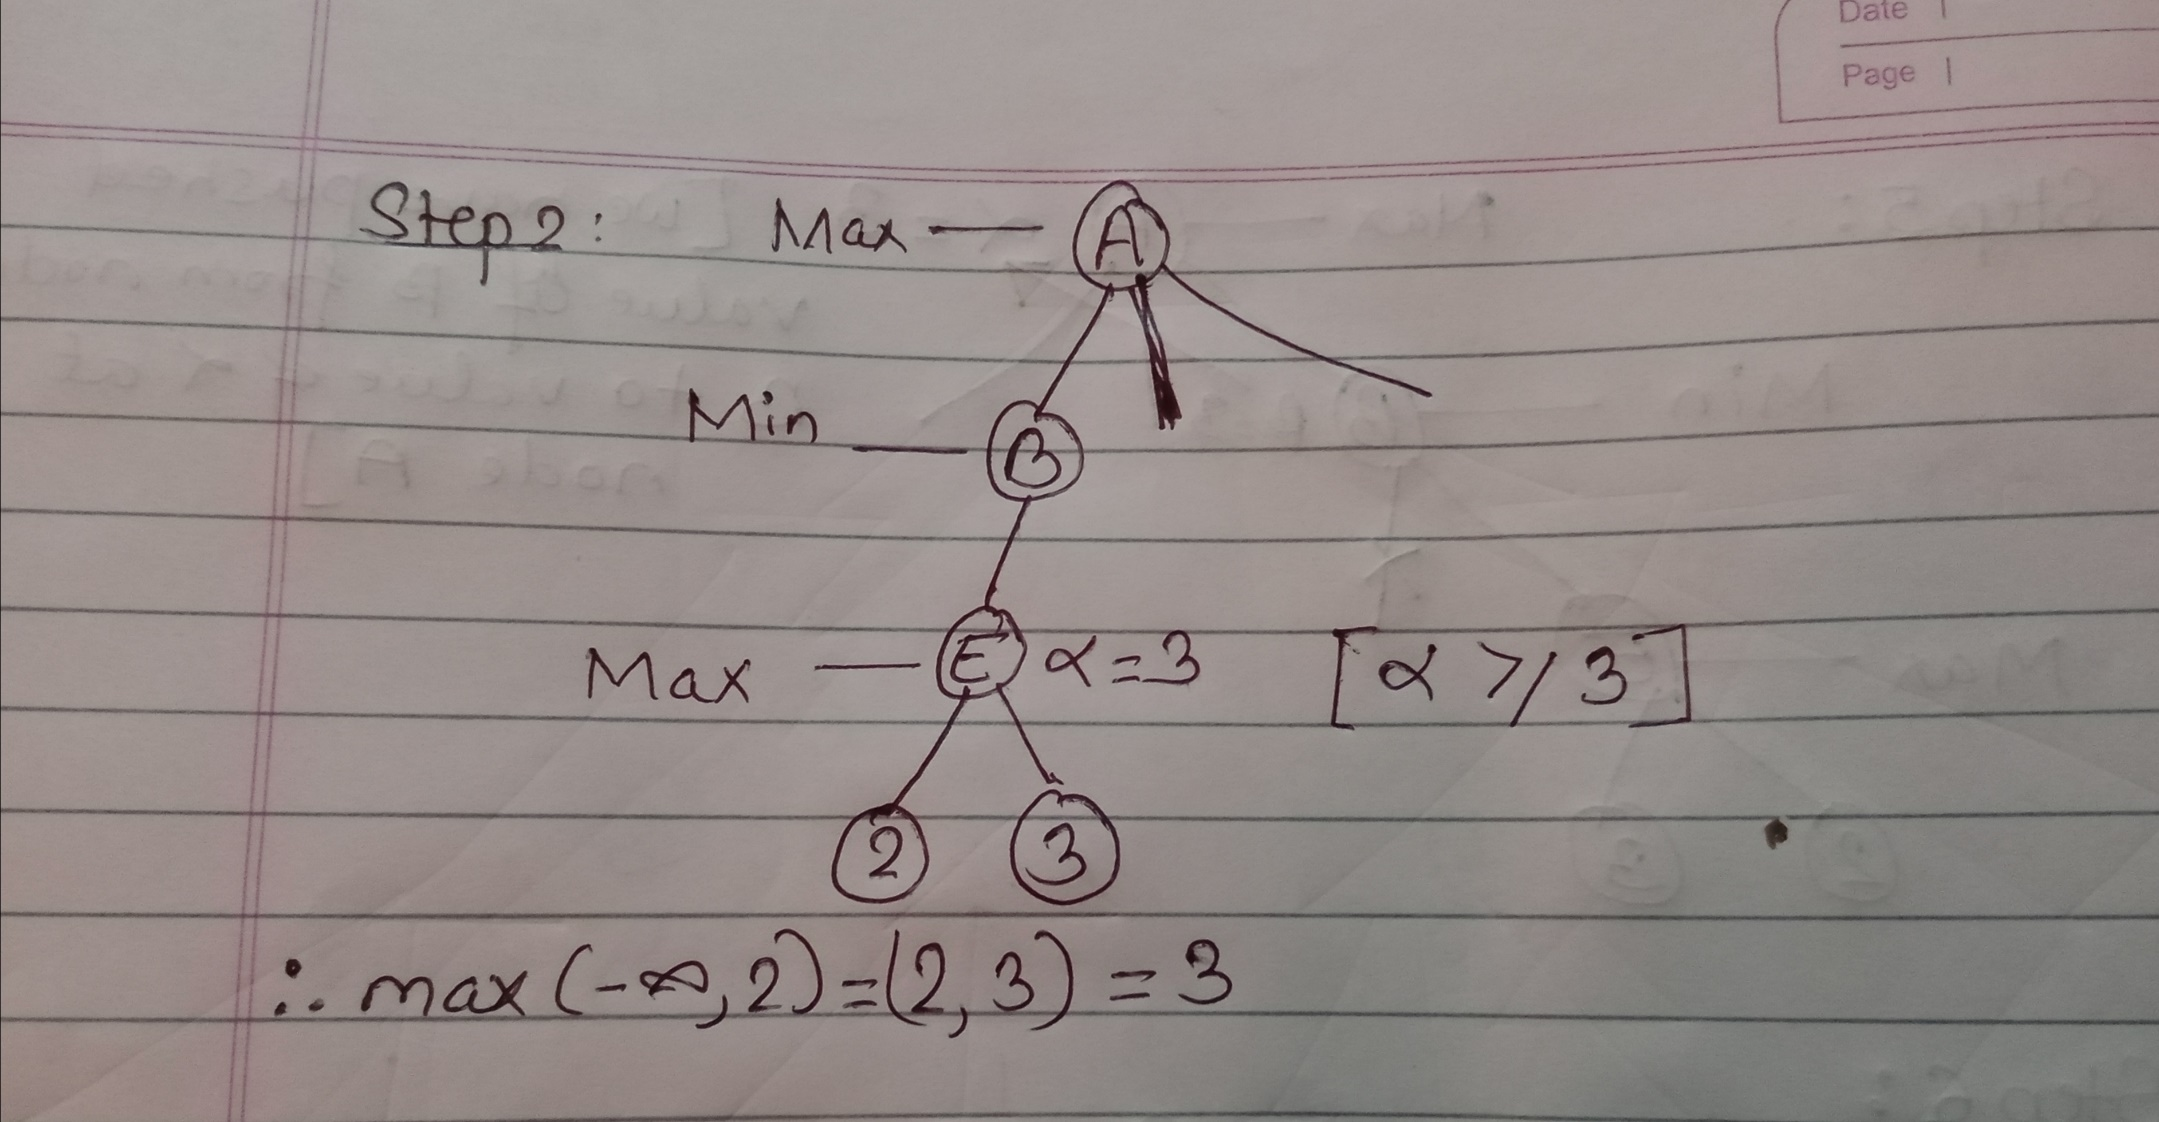 Date
Page
Step 2: Max — A
Min — B
Max — E α=3 [α ≥ 3]
2 3
∴ max (-∞, 2) = (2, 3) = 3